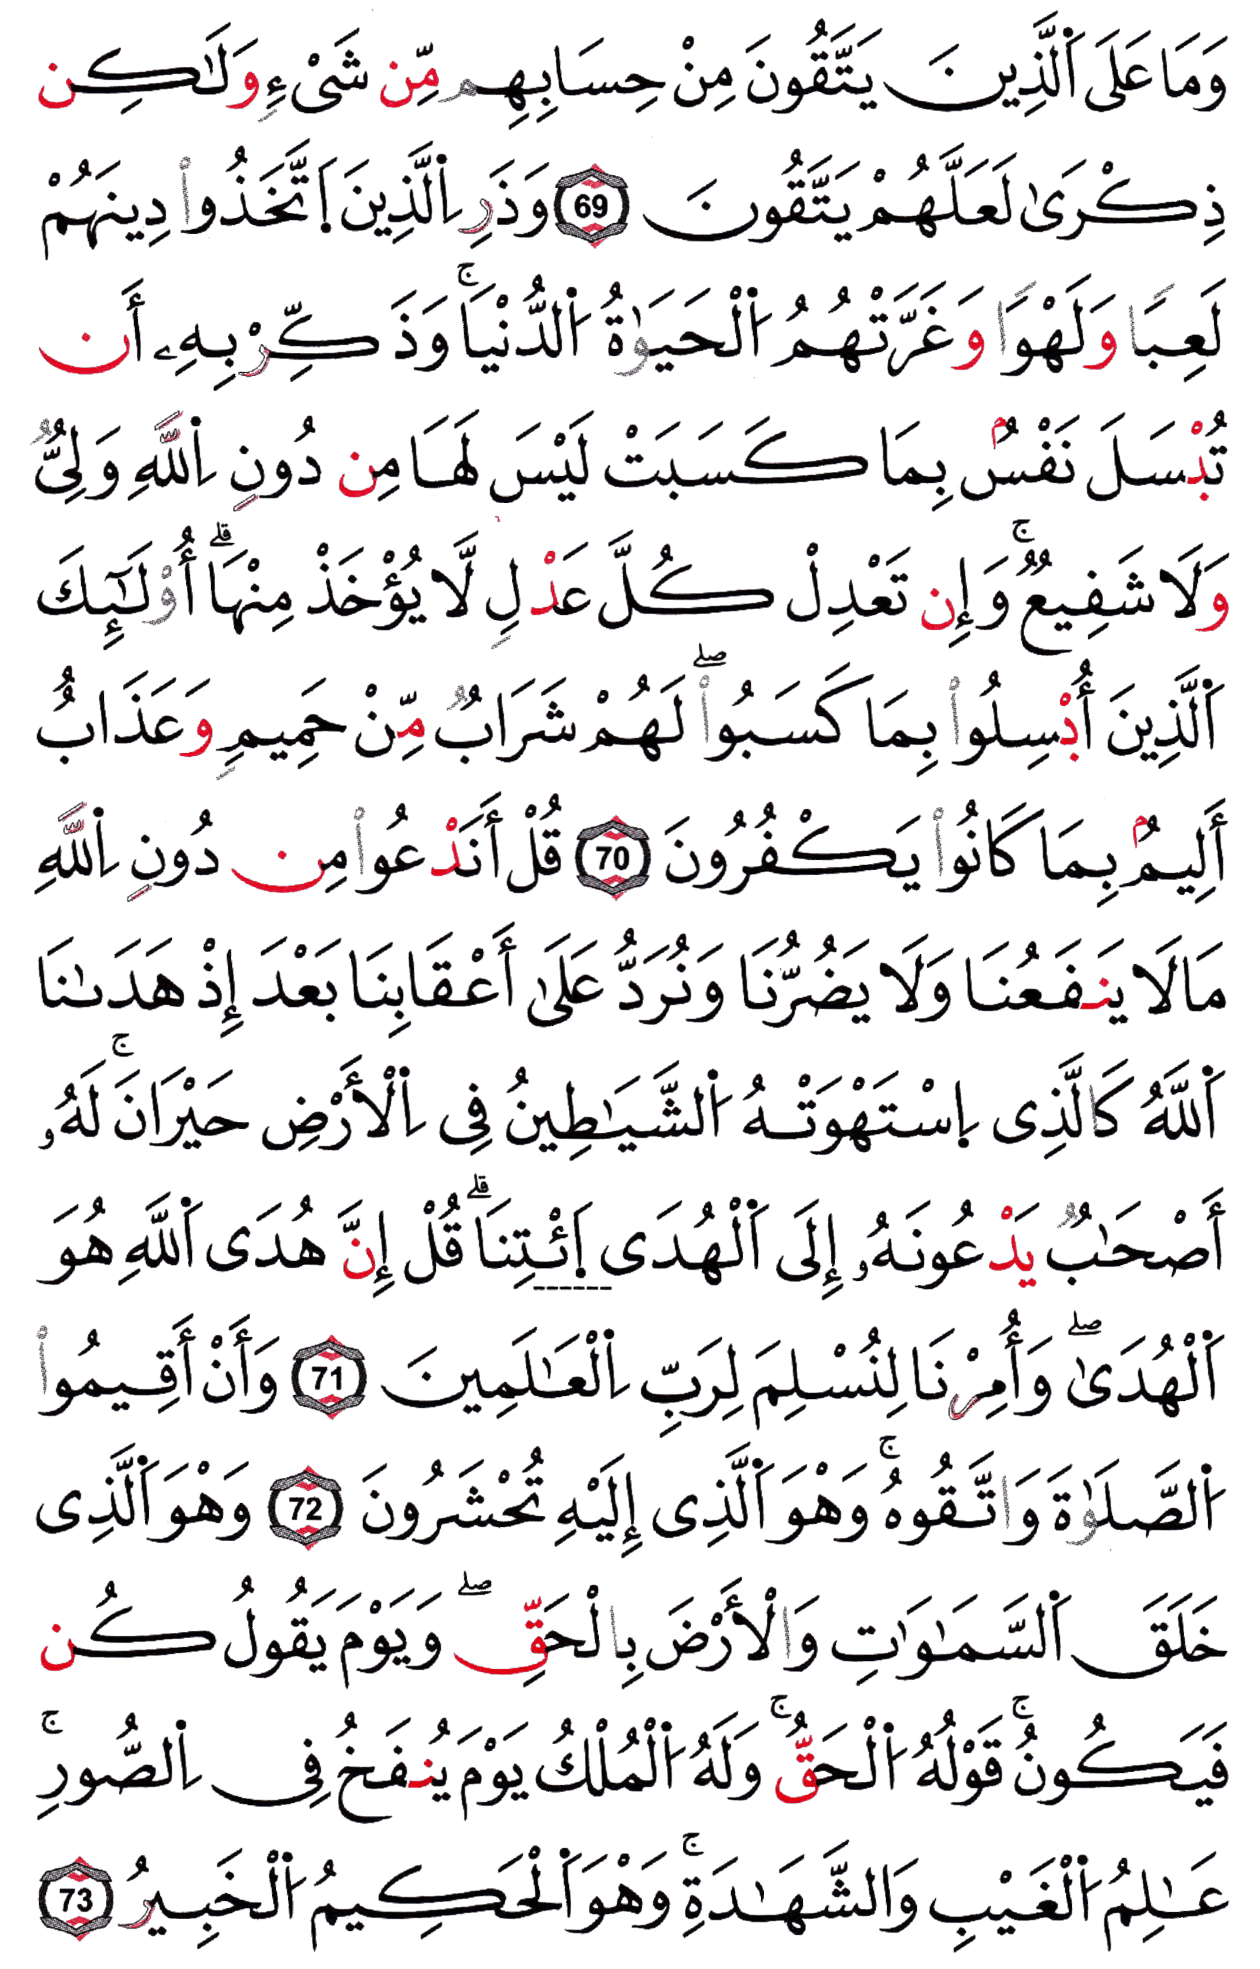 وَمَا عَلَى اَ۬لَّذِينَ يَتَّقُونَ مِنْ حِسَابِهِم مِّن شَىْءٍ وَلَٰكِن
ذِكْرَىٰ لَعَلَّهُمْ يَتَّقُونَ 69 وَذَرِ اِ۬لَّذِينَ اَ۪تَّخَذُواْ دِينَهُمْ
لَعِبًا وَلَهْوًا وَغَرَّتْهُمُ اُ۬لْحَيَوٰةُ اُ۬لدُّنْيَاۚ وَذَكِّرْ بِهِۦ أَن
تُبْسَلَ نَفْسُۢ بِمَا كَسَبَتْ لَيْسَ لَهَا مِن دُونِ اِ۬للَّهِ وَلِىٌّ
وَلَا شَفِيعٌۚ وَإِن تَعْدِلْ كُلَّ عَدْلٍ لَّا يُؤْخَذْ مِنْهَاۗ أُوْلَٰٓئِكَ
اَ۬لَّذِينَ أُبْسِلُواْ بِمَا كَسَبُواْۖ لَهُمْ شَرَابٌ مِّنْ حَمِيمٍ وَعَذَابٌ
أَلِيمُۢ بِمَا كَانُواْ يَكْفُرُونَ 70 قُلْ أَنَدْعُواْ مِن دُونِ اِ۬للَّهِ
مَا لَا يَنفَعُنَا وَلَا يَضُرُّنَا وَنُرَدُّ عَلَىٰ أَعْقَابِنَا بَعْدَ إِذْ هَدَىٰنَا
اَ۬للَّهُ كَالَّذِى اِ۪سْتَهْوَتْهُ اُ۬لشَّيَٰطِينُ فِى اِ۬لْأَرْضِ حَيْرَانَۚ لَهُۥ
أَصْحَٰبٌ يَدْعُونَهُۥ إِلَى اَ۬لْهُدَى اَ۪ئْتِنَاۗ قُلْ إِنَّ هُدَى اَ۬للَّهِ هُوَ
اَ۬لْهُدَىٰۖ وَأُمِرْنَا لِنُسْلِمَ لِرَبِّ اِ۬لْعَٰلَمِينَ 71 وَأَنْ أَقِيمُواْ
اُ۬لصَّلَوٰةَ وَاتَّقُوهُۚ وَهْوَ اَ۬لَّذِى إِلَيْهِ تُحْشَرُونَ 72 وَهْوَ اَ۬لَّذِى
خَلَقَ اَ۬لسَّمَٰوَٰتِ وَالْأَرْضَ بِالْحَقِّۖ وَيَوْمَ يَقُولُ كُن
فَيَكُونُۚ قَوْلُهُ اُ۬لْحَقُّۚ وَلَهُ اُ۬لْمُلْكُ يَوْمَ يُنفَخُ فِى اِ۬لصُّورِۚ
عَٰلِمُ اُ۬لْغَيْبِ وَالشَّهَٰدَةِۚ وَهْوَ اَ۬لْحَكِيمُ اُ۬لْخَبِيرُ 73